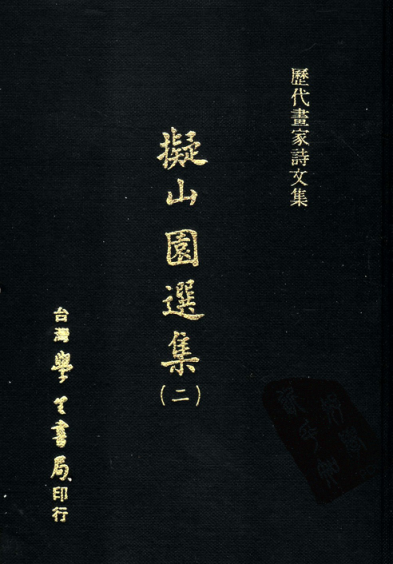 歷代畫家詩文集
擬山園選集
(二)
台灣學生書局印行